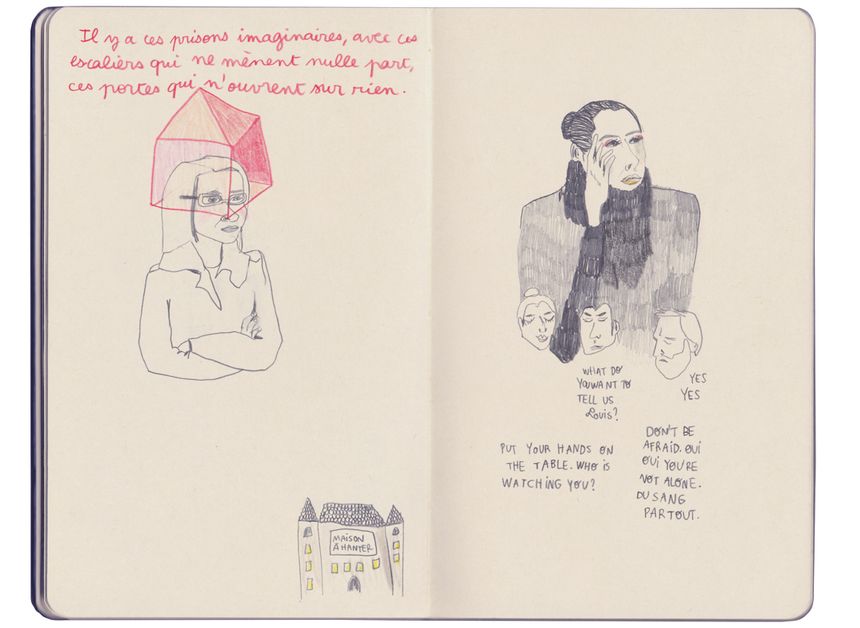 Il y a ces prisons imaginaires, avec ces
escaliers qui ne mènent nulle part,
ces portes qui n'ouvrent sur rien.
MAISON
À HANTER
WHAT DO
YOU WANT TO
TELL US
LOUIS?
YES
YES
PUT YOUR HANDS ON
THE TABLE. WHO IS
WATCHING YOU?
DON'T BE
AFRAID. OUI
OUI YOU'RE
NOT ALONE.
DU SANG
PARTOUT.